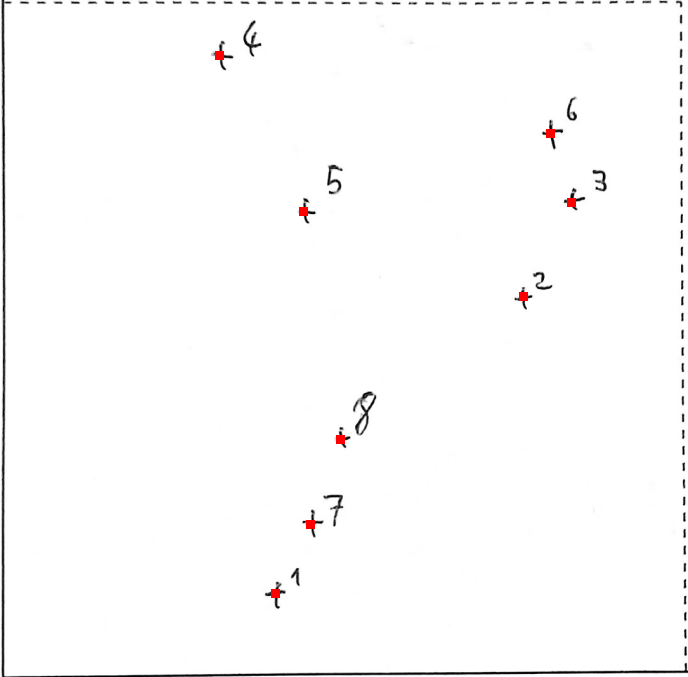 4
6
5
3
2
8
7
1